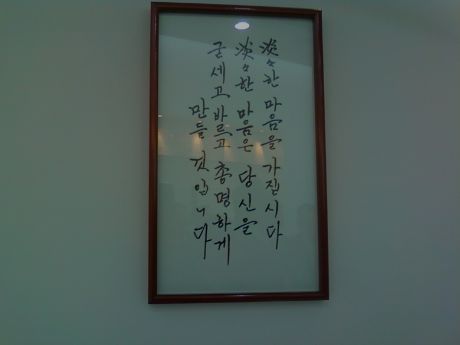 淡々한 마음을 가집시다
淡々한 마음은 당신을
굳세고 바르고 총명하게
만들 것입니다